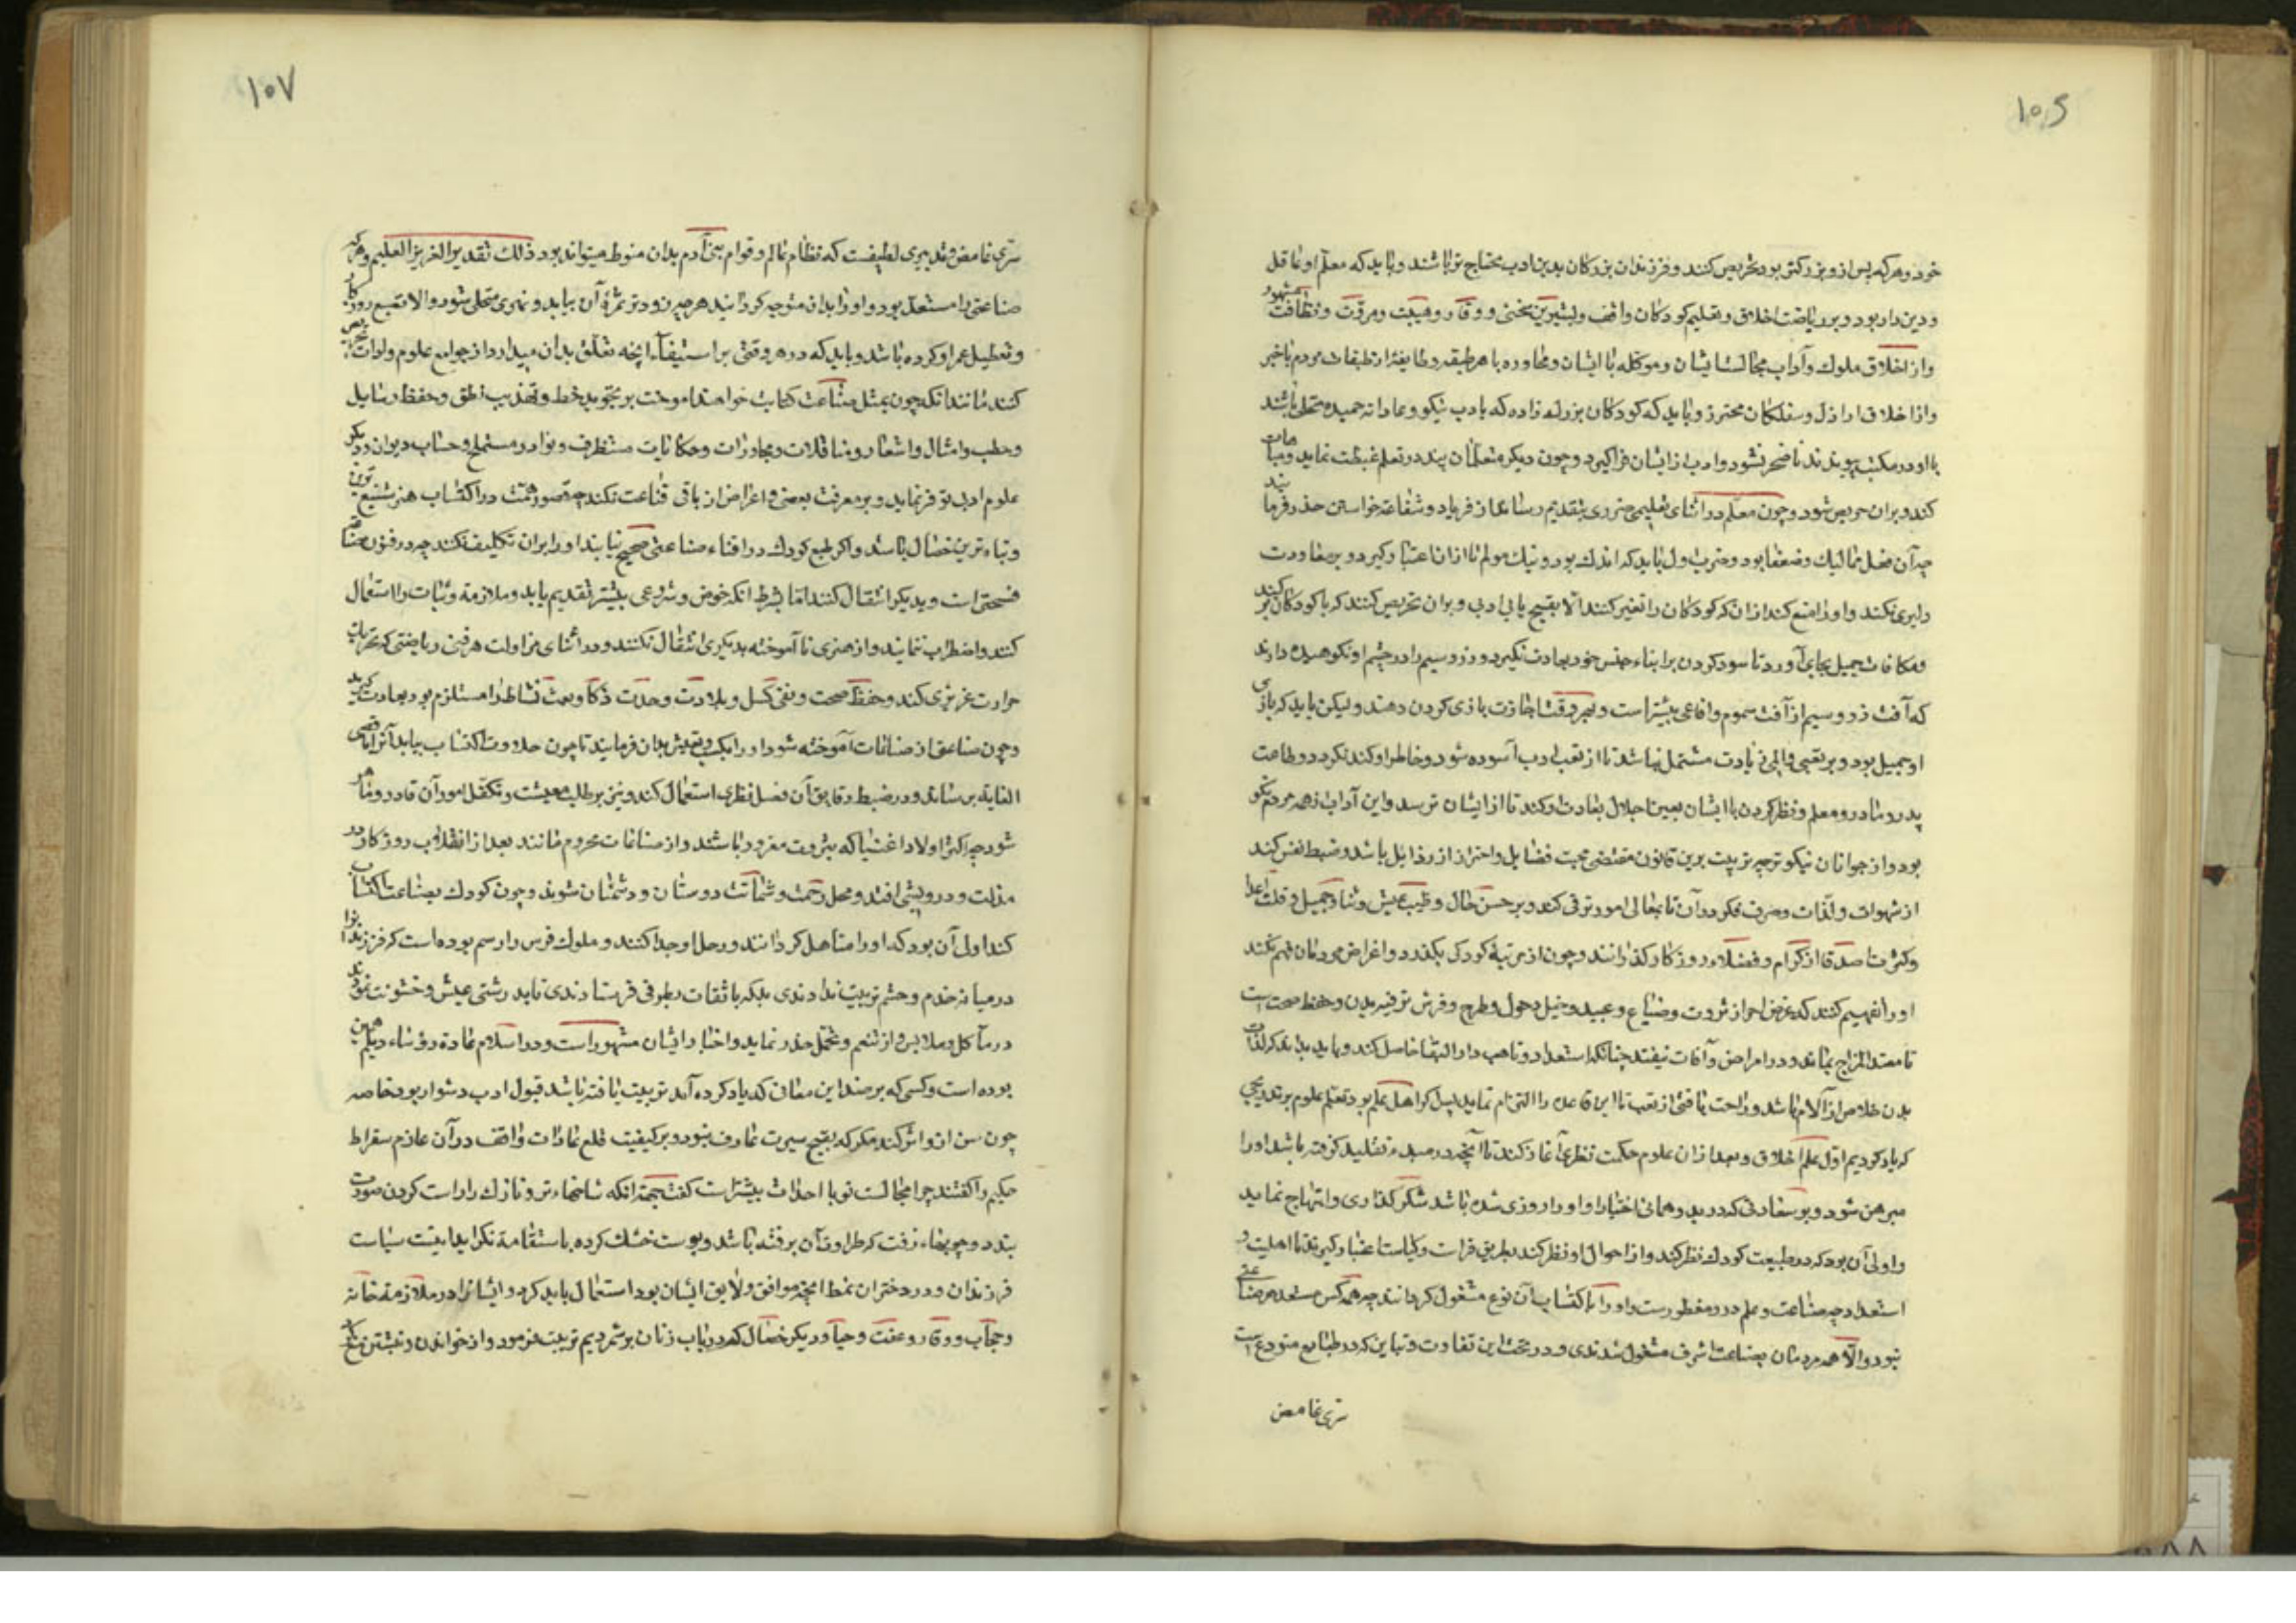 ۱۰۶
خود و هر که پس ازو بزرگتر بود تحریص کنند و فرزندان بزرگان بدین ادب محتاج تر باشند و باید که معلم او عاقل
و دین دار بود و بر ریاضت اخلاق و تعلیم کودکان واقف و بشیرین سخنی و وقار و هیبت و مروّت و نظافت مشهور
و از اخلاق ملوک و آداب مجالست ایشان و موکله با ایشان و محاوره با هر طبقه و طایفه از طبقات مردم با خبر
و از اخلاق اراذل و سفلکان محترز و باید که کودکان بزرک زاده که بادب نیکو و عادات حمیده متحلی باشند
با او در مکتب بوند تا ضجر نشود و ادب از ایشان فراگیرد و چون دیگر متعلمان بیند در تعلم غبطت نماید و مباهات
کند و بران حریص شود و چون معلّم در اثنای تعلیم ضربی بتقدیم رساند از فریاد و شفاعة خواستن حذر فرمایند
چه آن فعل ممالیک و ضعفا بود و ضرب اول باید که اندک بود و نیک مولم تا ازان اعتبار گیرد و بر معاودت
دلیری نکند و او را منع کند ازان که کودکان را تعییر کنند الا بقبیح یا بی ادبی و بران تحریص کنند که با کودکان بر کنند
و مکافات جمیل بجای آورد تا سود کردن بر ابناء جنس خود بعادت نگیرد و زر و سیم را در چشم او نکوهیده دارند
که آفت زر و سیم از آفت سموم و افاعی بیشتر است و بهر وقت اجازت بازی کردن دهند و لیکن باید که بازی
او جمیل بود و بر تعبی و المی زیادت مشتمل نباشد تا از تعب ادب آسوده شود و خاطر او کند نگردد و طاعت
پدر و مادر و معلم و نظر کردن با ایشان بعین اجلال بعادت وکند تا از ایشان ترسد و این آداب از همه مردم نیکو
بود و از جوانان نیکوتر چه تربیت برین قانون مقتضی محبت فضایل و احتراز از رذایل باشد و ضبط نفس کند
از شهوات و لذّات و صرف فکر در آن تا بمعالی امور ترقی کند و بر حسن حال و طیب عیش و ثناء جمیل و قلت اعدا
و کثرت اصدقا از کرام و فضلاء روزگار گذرانند و چون از مرتبهٔ کودکی بگذرد و اغراض مردمان فهم کند
او را تفهیم کنند که غرض اخیر از ثروت و ضیاع و عبید و خیل و خول و طرح و فرش ترفیه بدن و حفظ صحت است
تا معتدل المزاج بماند و در امراض و آفات نیفتد چنانکه استعداد و تاهب دار البقا حاصل کند و باید بداند که لذّات
بدن خلاص از آلام باشد و راحت یافتن از تعب تا این قاعده را التزام نماید پس اگر اهل علم بود تعلم علوم بر تدریجی
که یاد کردیم اول علم اخلاق و بعد ازان علوم حکمت نظری آغاز کند تا آنچه در مبدء بتقلید گرفته باشد او را
مبرهن شود و بر سعادتی که در بدو نما بی اختیار او او را روزی شده باشد شکر گذاری و ابتهاج نماید
و اولی آن بود که در طبیعت کودک نظر کند و از احوال او نظر کند بطریق فراست و کیاست اعتبار گیرند تا اهلیت و
استعداد چه صناعت و علم در و مفطورست و او را با کتساب آن نوع مشغول گردانند چه همه کس مستعد هر صناعتی
نبود و الّا همه مردمان بصناعت اشرف مشغول شدندی و در تحت این تفاوت و تباین که در طبایع مستودع است
سّری غامض
۱۰۷
سّری غامض و تدبیری لطیفست که نظام عالم و قوام بنی آدم بدان منوط میتواند بود ذلک تقدیر العزیز العلیم و هر که
صناعتی را مستعد بود و او را بدان متوجه گردانند هر چه زودتر ثمرهٔ آن بیابد و بهنری متحلی شود و الا تضییع روزگار
و تعطیل عمر او کرده باشد و باید که در هر وقتی بر استیفاء آنچه تعلّق بدان میدارد از جوامع علوم و ادات تحریص
کنند مانند آنکه چون بمثل صناعت کتابت خواهند آموخت بر تجوید خط و تهذیب نطق و حفظ رسایل
و خطب و امثال و اشعار و مناقلات و محاورات و حکایات مستظرف و نوادر مستملح و حساب دیوان و دیگر
علوم ادبی توفر نماید و بر معرفت بعضی و اعراض از باقی قناعت نکند چه قصور همّت در اکتساب هنر شنیع ترین
و تباه ترین خصال باشد و اگر طبع کودک در اقتناء صناعتی صحیح نیابند او را بران تکلیف نکنند چه در فنون صناعت
فسحتی است و بدیگر انتقال کنند امّا بشرط آنکه خوض و شروعی بیشتر تقدیم یابد و ملازمة و ثبات را استعمال
کنند و اضطراب ننمایند و از هنری نا آموخته بدیگری انتقال نکنند و در اثنای مزاولت هر فنی ریاضتی که تحریک
حرارت غریزی کند و حفظ صحت و نفی کسل و بلادت و حدّت ذکا و بعث نشاط را مستلزم بود بعادت گیرد
و چون صناعتی از صناعات آموخته شود او را بکسب و تعیش بدان فرمایند تا چون حلاوت اکتساب بیابد آنرا باقصی
الغایة برساند و در ضبط دقایق آن فضل نظری استعمال کند و نیز بر طلب معیشت و تکفل امور آن قادر و ماهر
شود چه اکثر اولاد اغنیا که بثروت مغرور باشند و از صناعات محروم مانند بعد از انقلاب روزگار در
مذلت و درویشی افتند و محل رحمت و شماتت دوستان و دشمنان شوند و چون کودک بصناعت اکتساب
کند اولی آن بود که او را متاهل گردانند و رحل او جدا کنند و ملوک فرس را رسم بوده است که فرزندانرا
در میانه خدم و حشم تربیت ندادندی بلکه با ثقات بطرفی فرستادندی تا بدرشتی عیش و خشونت نمودند
در مآکل و ملابس و از تنعم و تجمل حذر نماید و اخبار ایشان مشهور است و در اسلام عادة رؤساء دیلم همین
بوده است و کسی که بر ضد این معانی که یاد کرده آمد تربیت یافته باشد قبول ادب دشوار بود خاصه
چون سن او را اثر کند مگر که بقبح سیرت عارف بود و بر کیفیت قلع عادات واقف در آن عازم سقراط
حکیم را گفتند چرا مجالست تو با احداث بیشتر است گفت جهة آنکه شاخهاء تر و نازک را راست کردن صورت
بندد و چوبهاء زفت که طراوت آن برفته باشد و پوست خشک کرده باستقامة نگراید اینست سیاست
فرزندان و در دختران نمط آنچه موافق و لایق ایشان بود استعمال باید کرد و ایشانرا در ملازمة خانه
و حجاب و وقار و عفت و حیا و دیگر خصال که در باب زنان برشمردیم تربیت فرمود و از خواندن و نبشتن منع کرد